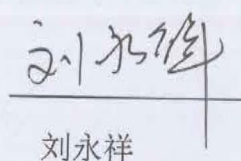 刘永祥
刘永祥